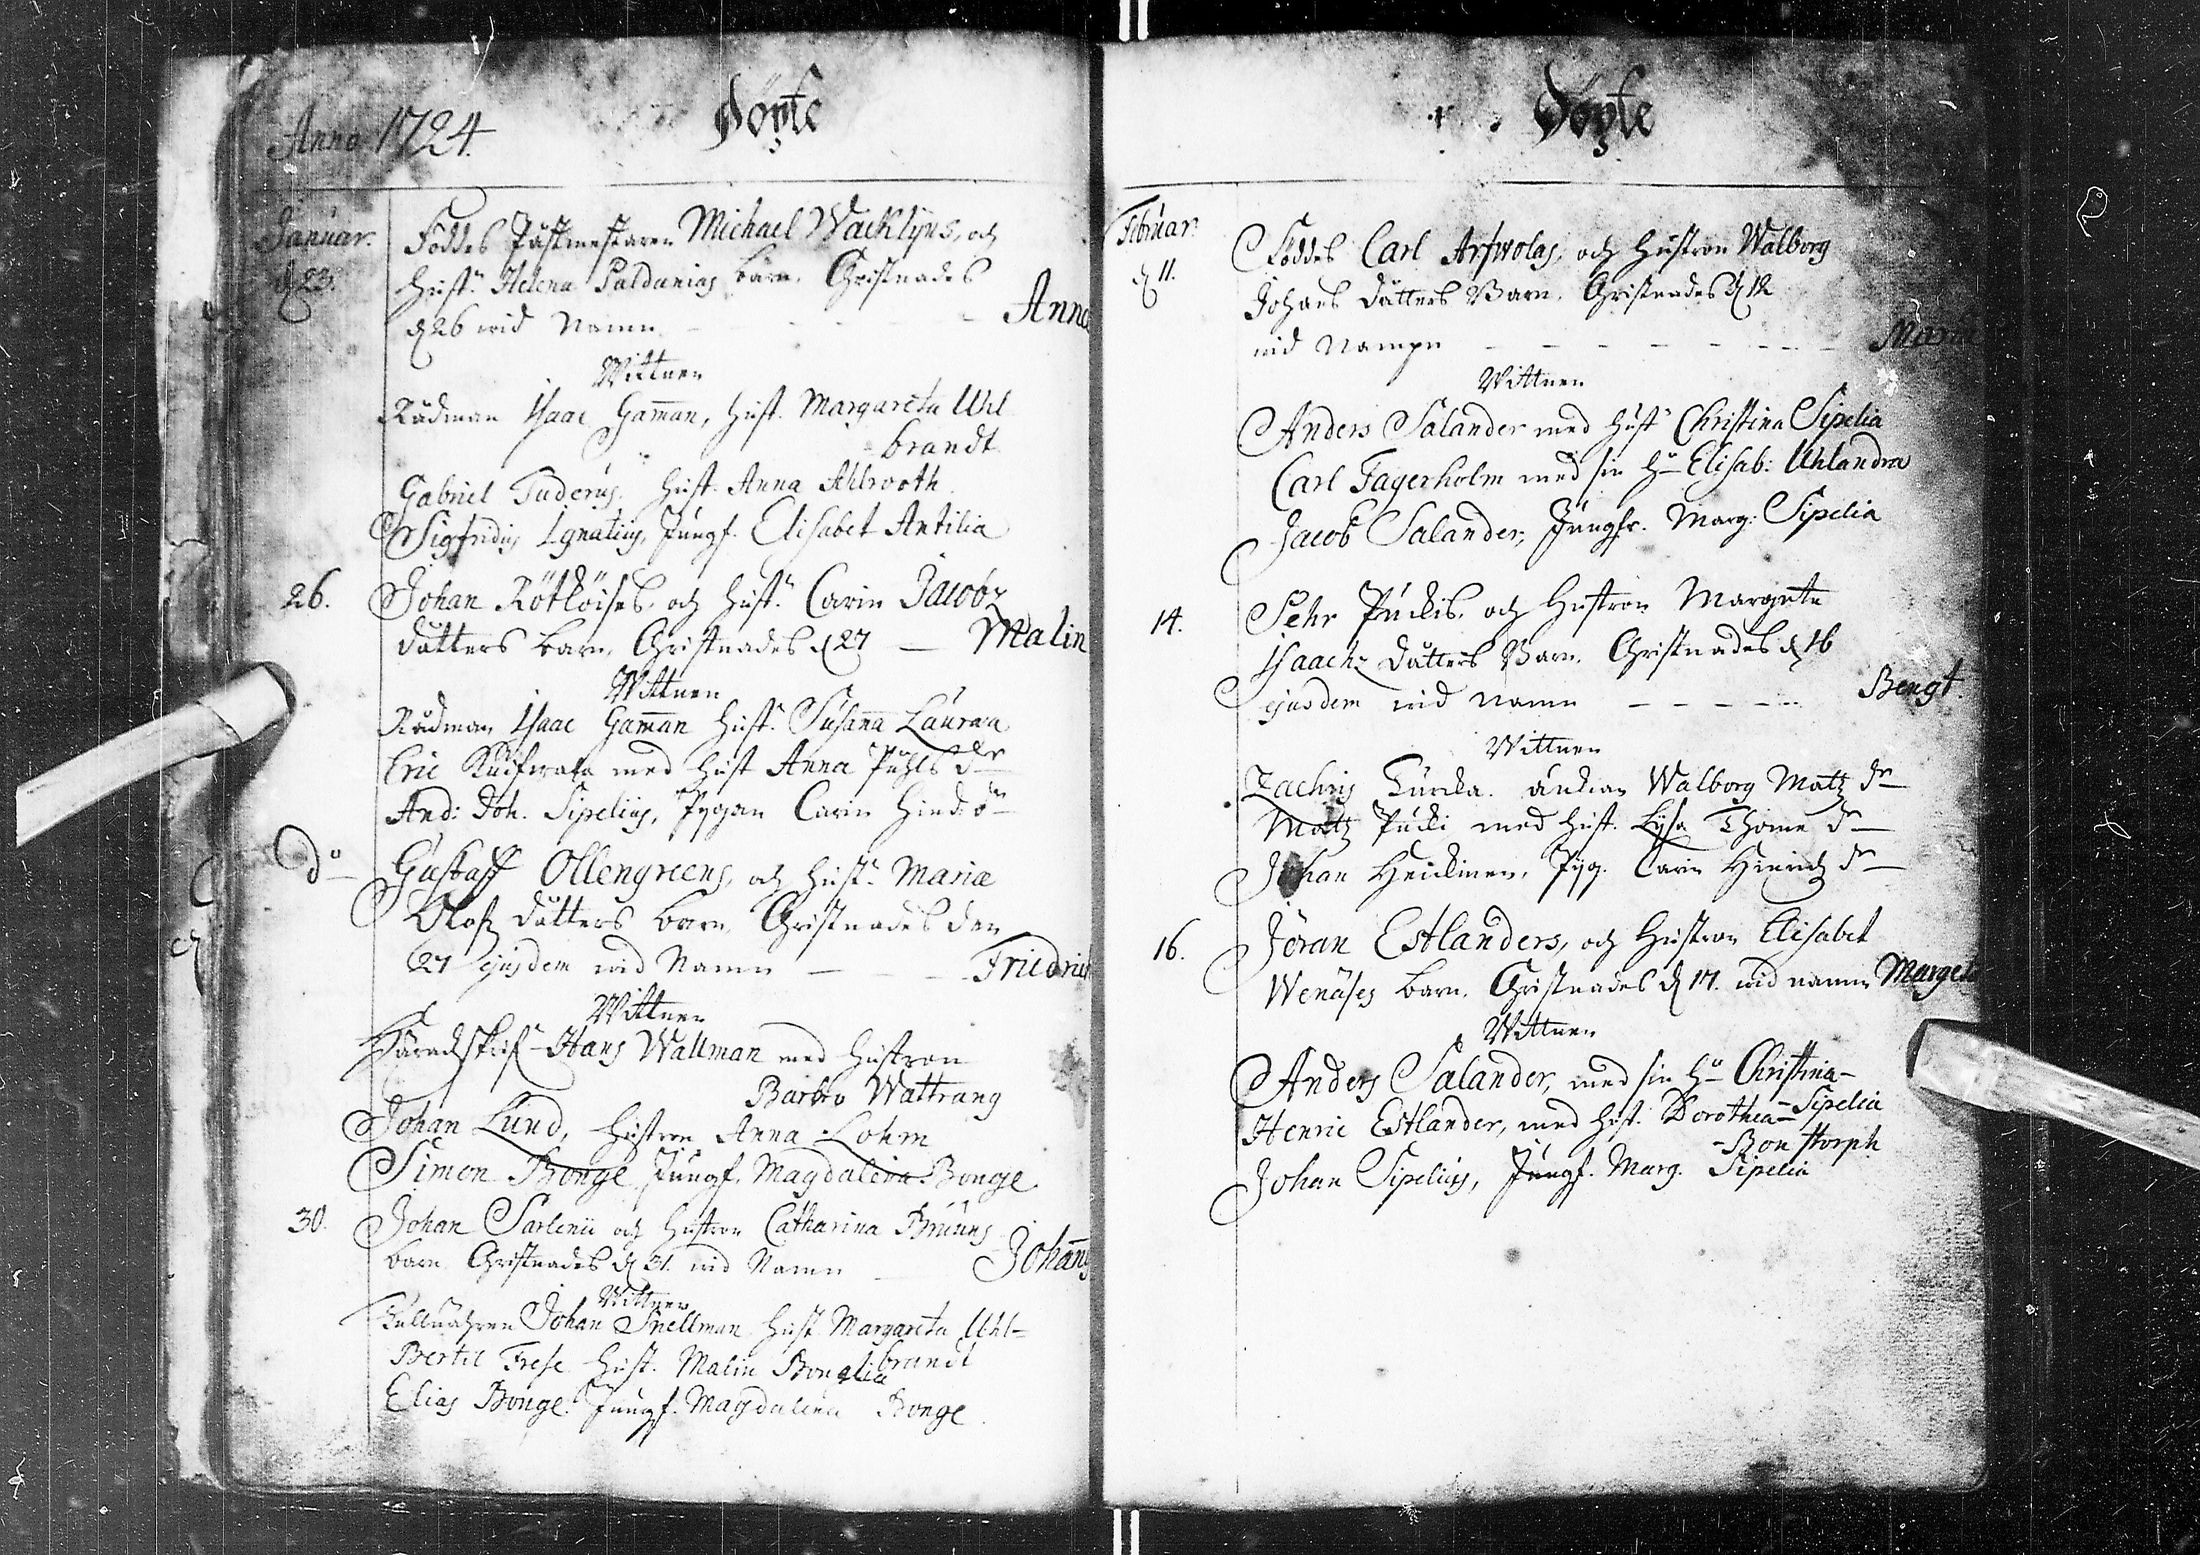 Anno 1724.
Döpte
Januar:
Föddes Pästmestaren Michael Wacklyns, och
d 23.
Hust: Helena Paldanias barn. Christnades
d 26 wid Namn - - - Anna
Wittnen
Rådman Isaac Gam̄an, Hust. Margareta Uhl
brandt
Gabriel Tuderus, Hust. Anna Ahlrooth
Sigfridus Ignatius, Jungf. Elisabet Antilia
26. Johan Rötköises, och Hust: Carin Jacobz
dåtters barn, Christnades d 27 — Malin
Wittnen
Rådman Isaac Gam̄an Hust: Susan̄a Lauræa
Eric med Hust Anna Puhls dr
And: Joh. Sipelius, Pygan Carin Hind: dr
do Gustaff Ollengreens, och Hust: Maria
Olofz dåtters barn, Christnades den
27 ejusdem wid Namn — - - Friedrich
Wittnen
Häradsskrif- Hans Wallman med Hustron
Barbro Wattrang
Johan Lund, Hustron Anna Lohm
Simon Bonge, Jungf. Magdalena Bonge
30. Johan Sarlenii och Hustron Catharina Bruuns
barn Christnades d 31. wid Namn — Johan̄s
Wittner
Johan Snellman Hust Margareta Uhl=
brandt
Bertil Frese Hust. Malin Bonglia
Elias Bonge. Jungf. Magdalena Bonge
Döpte
Februar:
d 11.
Föddes Carl Arfwolas, och Hustron Walborg
Johans dåtters Barn, Christnades d 12
wid Nampn - - - - - - - Maria
Wittnen
Anders Salander med Hust: Christina Sipelia
Carl Fagerholm med sin Hu Elisab: Uhlandra
Jacob Salander, Jungfr. Marg: Sipelia
14. Pehr Puckis, och Hustron Margeta
Isaachz dåtters Barn. Christnades d 16
ejusdem wid namn - - - - - Bengt.
Wittnen
Zachris änkian Walborg Matz dr
Matz Pucki med Hust. Lysa Thome dr
Johan Heickinen, Pyg. Carin Hinrich dr
16. Jöran Estlanders, och Hustron Elisabet
Wenäses barn, Christnades d 17. wid namn Margeta
Wittnen
Anders Salander, med sin Hu Christina-
-Sipelia
Henric Estlander, med Hust. Dorothea-
-Bonstorph
Johan Sipelius, Jungf. Marg. Sipelia